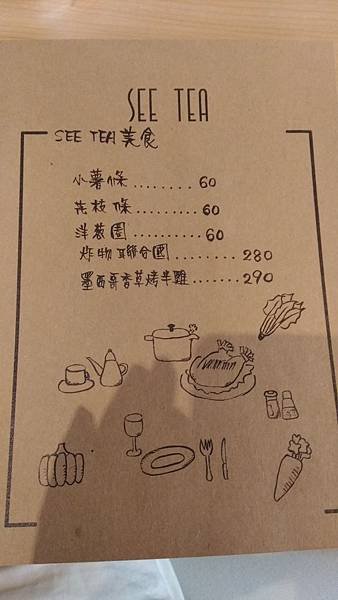 SEE TEA
SEE TEA 美食
小薯條........60
花枝條.........60
洋葱圈..........60
炸物聯合國........280
墨西哥香草烤半雞.......290